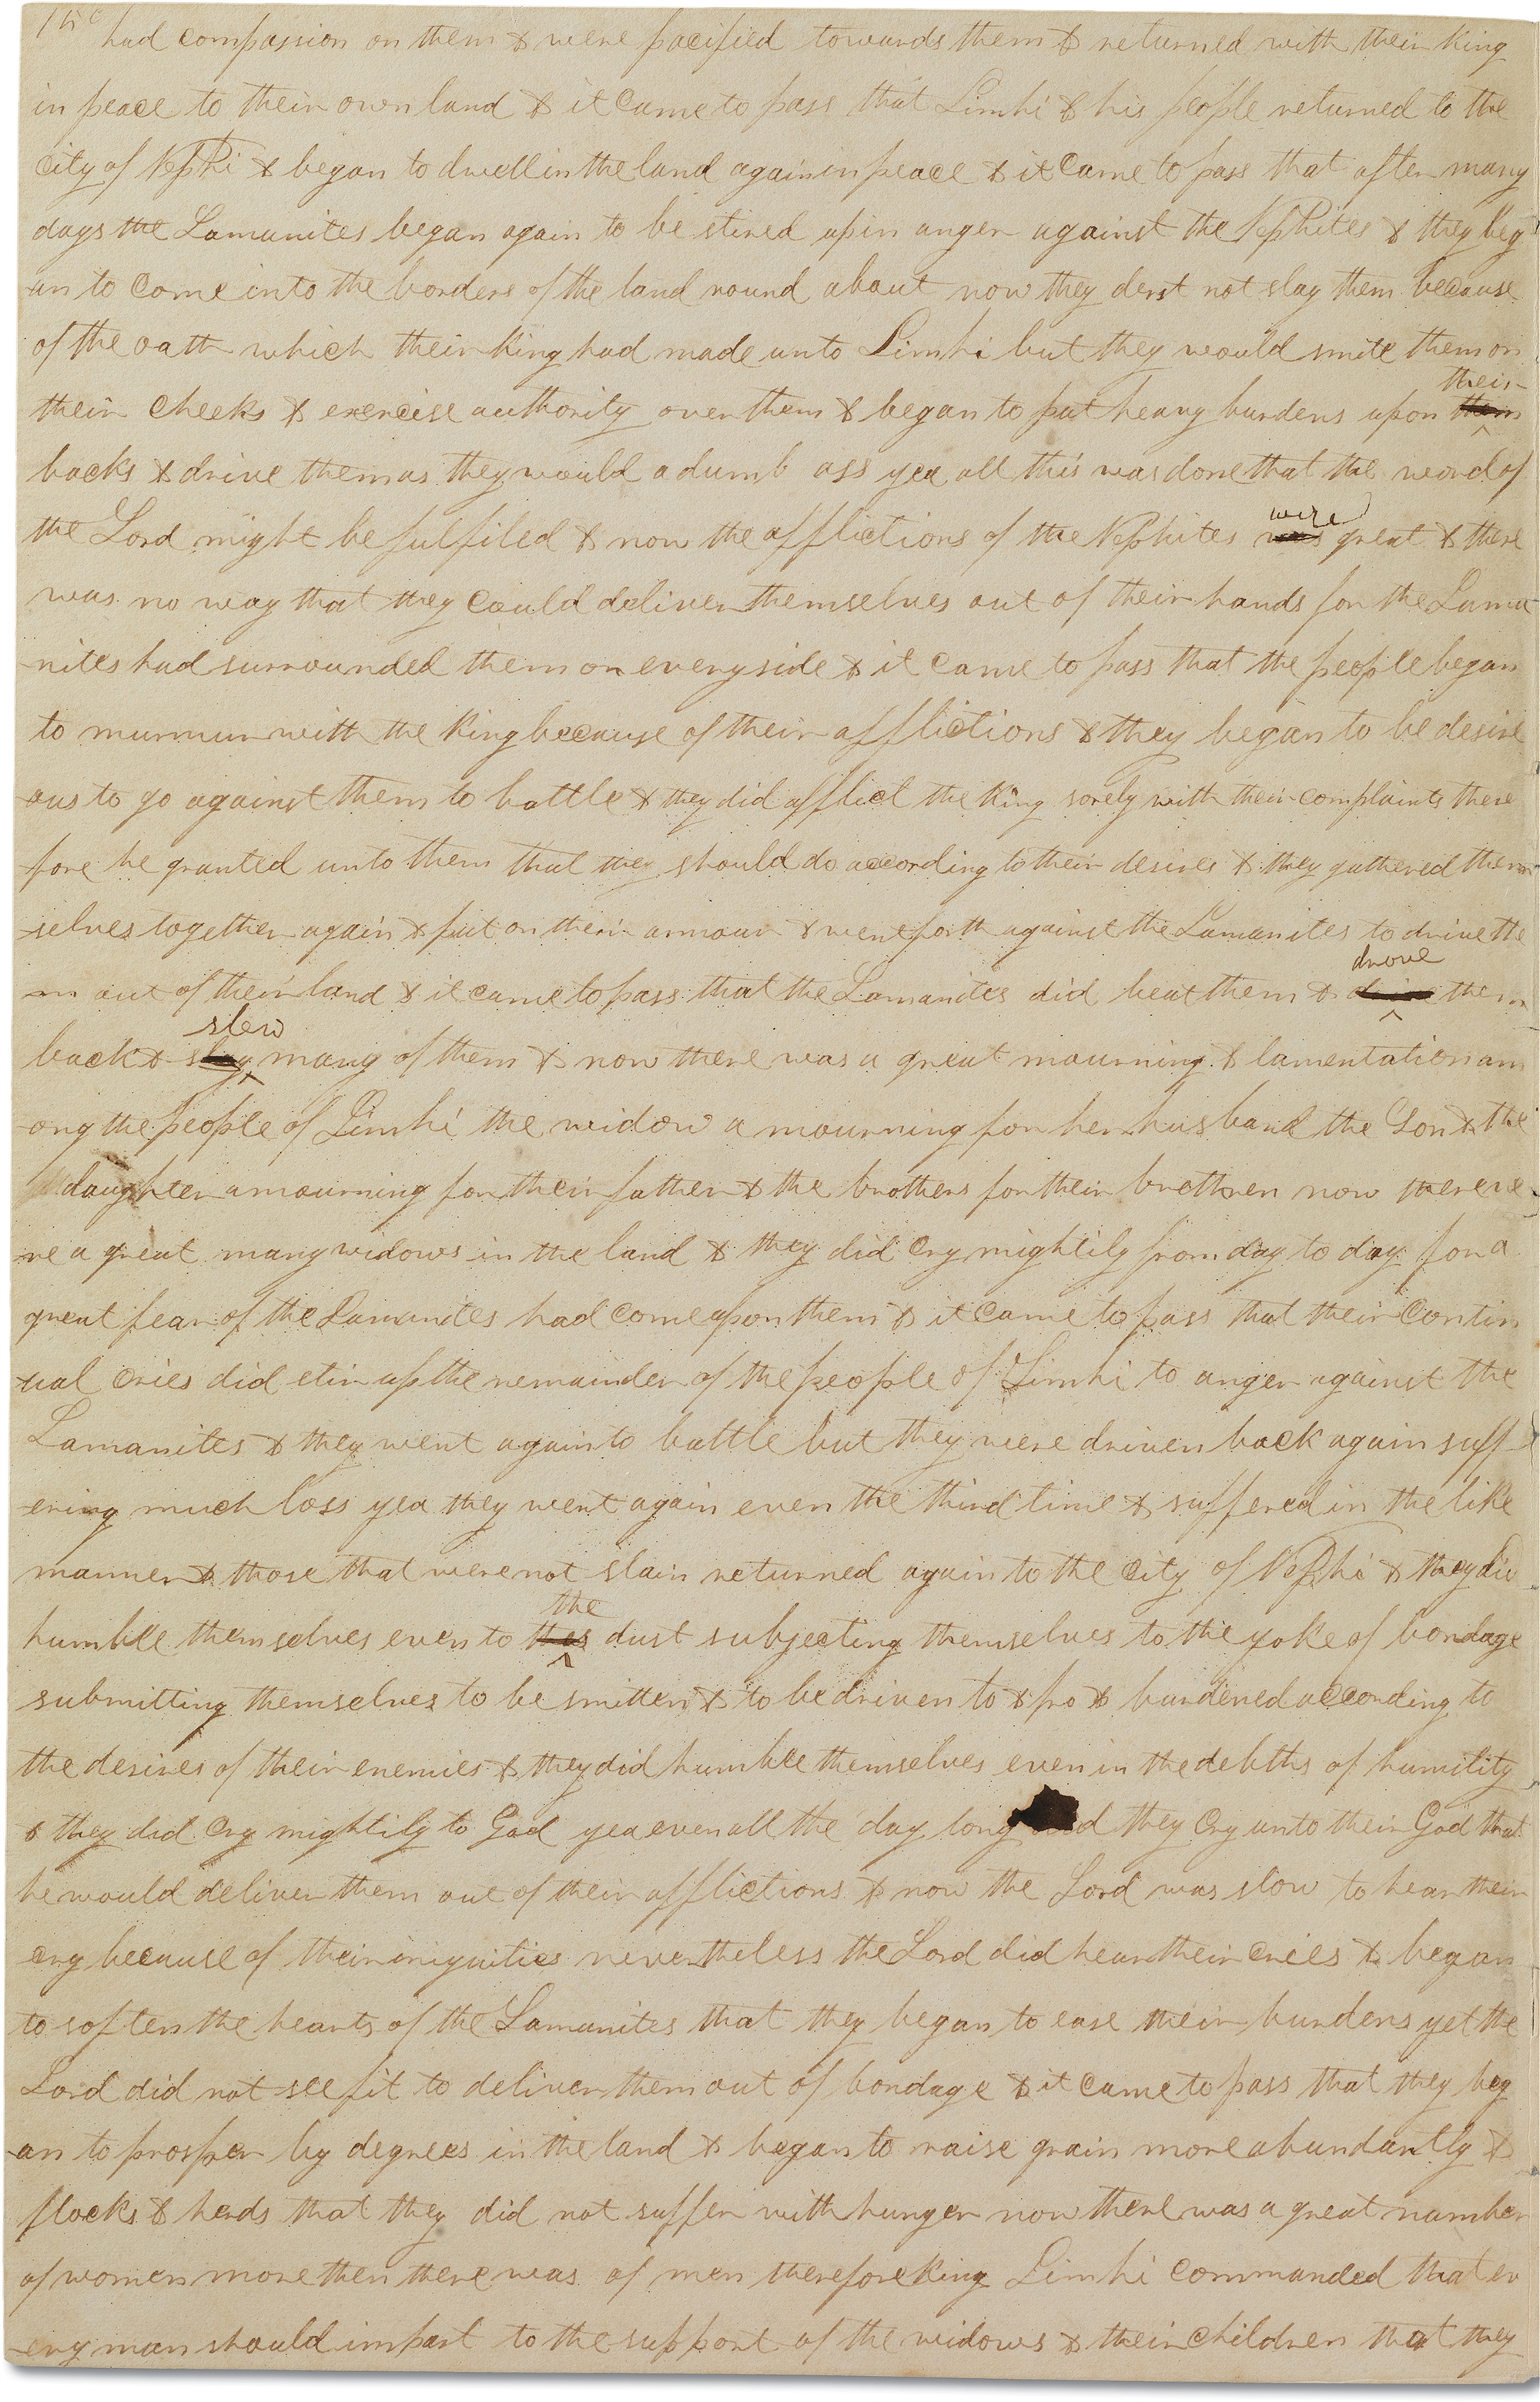 150 had compassion on them & were pacified towards them & returned with their king
in peace to their own land & it came to pass that Limhi & his people returned to the
city of Nephi & began to dwell in the land again in peace & it came to pass that after many
days the Lamanites began again to be stired up in anger against the Nephites & they beg
-an to come into the borders of the land round about now they derst not slay them because
of the oath which their king had made unto Limhi but they would smite them on
their
their cheeks & exercise authority over them & began to put heavy burdens upon them
backs & drive them as they would a dumb ass yea all this was done that the word of
were
the Lord might be fulfiled & now the afflictions of the Nephites was great & there
was no way that they could deliver themselves out of their hands for the Lama
-nites had surrounded them on every side & it came to pass that the people began
to murmur with the king because of their afflictions & they began to be desire
-ous to go against them to battle & they did afflict the king sorely with their complaints there
fore he granted unto them that they should do according to their desires & they gathered them
-selves together again & put on their armour & went forth against the Lamanites to drive the
drove
-m out of their land & it came to pass that the Lamanites did beat them & drive them
slew
back & slay many of them & now there was a great mourning & lamentation am
-ong the people of Limhi the widow a mourning for her husband the Son & the
daughter a mourning for their father & the brothers for their brethren now there we
-re a great many widows in the land & they did cry mightily from day to day for a
great fear of the Lamanites had come upon them & it came to pass that their contin
-ual cries did stir up the remainder of the people of Limhi to anger against the
Lamanites & they went again to battle but they were driven back again suff
-ering much loss yea they went again even the third time & suffered in the like
manner & those that were not slain returned again to the city of Nephi & they did
the
humble themselves even to thes dust subjecting themselves to the yoke of bondage
submitting themselves to be smitten & to be driven to & fro & burdened according to
the desires of their enemies & they did humble themselves even in the debths of humility
& they did cry mightily to God yea even all the day long did they cry unto their God that
he would deliver them out of their afflictions & now the Lord was slow to hear their
cry because of their iniquities nevertheless the Lord did hear their cries & began
to soften the hearts of the Lamanites that they began to ease their burdens yet the
Lord did not see fit to deliver them out of bondage & it came to pass that they beg
-an to prosper by degrees in the land & began to raise grain more abundantly &
flocks & herds that they did not suffer with hunger now there was a great number
of women more then there was of men therefore king Limhi commanded that ev
-ery man should impart to the support of the widows & their children that they